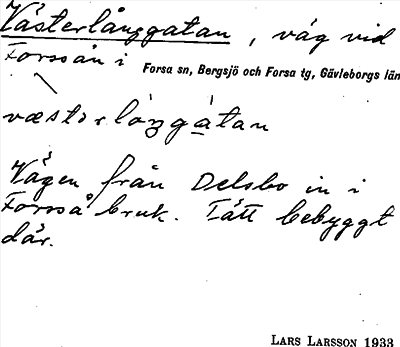 Västerlånggatan, väg vid
Forssån i Forsa sn, Bergsjö och Forsa tg, Gävleborgs län
væstərlåŋgàtan
Vägen från Delsbo in i
Forsså bruk. Tätt bebyggt
där.
LARS LARSSON 1933